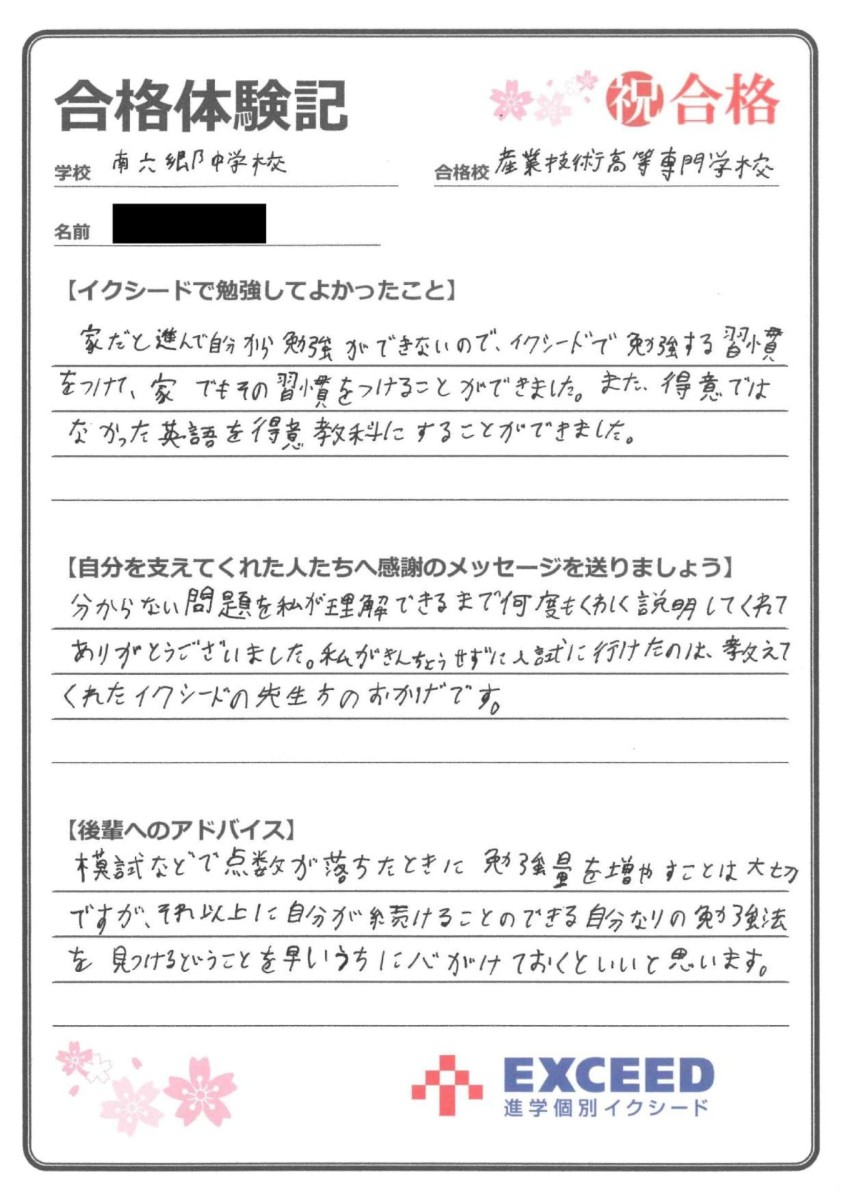 合格体験記
㊗合格
学校 南六郷中学校
合格校 産業技術高等専門学校
名前
【イクシードで勉強してよかったこと】
家だと進んで自分から勉強ができないので、イクシードで勉強する習慣
をつけて、家でもその習慣をつけることができました。また、得意では
なかった英語を得意教科にすることができました。
【自分を支えてくれた人たちへ感謝のメッセージを送りましょう】
分からない問題を私が理解できるまで何度もくわしく説明してくれて
ありがとうございました。私がきんちょうせずに入試に行けたのは、教えて
くれたイクシードの先生方のおかげです。
【後輩へのアドバイス】
模試などで点数が落ちたときに勉強量を増やすことは大切
ですが、それ以上に自分が続けることのできる自分なりの勉強法
を見つけるということを早いうちに心がけておくといいと思います。
EXCEED
進学個別イクシード